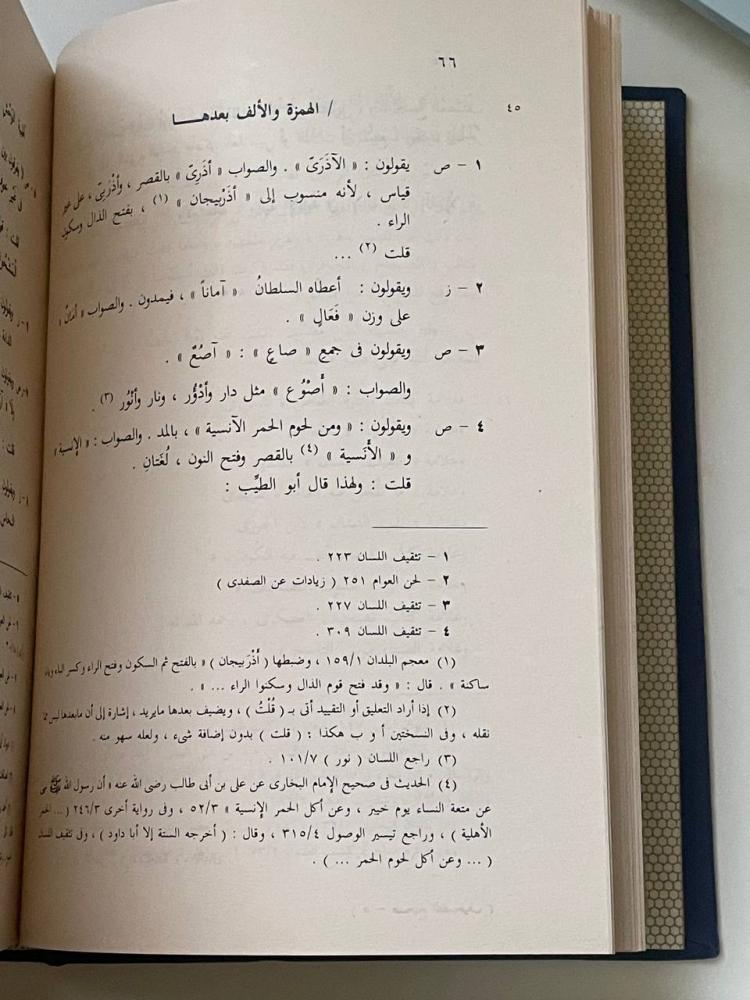 ٦٦
٤٥ / الهمزة والألف بعدهـــا
١ – ص يقولون : « الآذَرِىّ » . والصواب « أذَرِىّ » بالقصر ، وأذْرِىّ ، على غير
قياس ، لأنه منسوب إلى « أذَرْبيجان » (١) ، بفتح الذال وسكون
الراء .
قلت (٢) ...
٢ – ز ويقولون : أعطاه السلطانُ « آماناً » ، فيمدون . والصواب « أمانٌ »
على وزن « فَعَالٍ » .
٣ – ص ويقولون فى جمع « صاعٍ » : « آصُعٌ » .
والصواب : « أصْوُع » مثل دار وأدْؤُر ، ونار وأنْوُر (٣) .
٤ – ص ويقولون : « ومن لحوم الحمر الآنسية » ، بالمد . والصواب : « الإنسية »
و « الأَنَسية » (٤) بالقصر وفتح النون ، لُغَتانِ .
قلت : ولهذا قال أبو الطيِّب :
١ – تثقيف اللسان ٢٢٣ .
٢ – لحن العوام ٢٥١ ( زيادات عن الصفدى )
٣ – تثقيف اللسان ٢٢٧ .
٤ – تثقيف اللسان ٣٠٩ .
(١) معجم البلدان ١٥٩/١ ، وضبطها ( أَذْرَبيجان ) « بالفتح ثم السكون وفتح الراء وكسر الباء وياء
ساكنة » . قال : « وقد فتح قوم الذال وسكنوا الراء ... » .
(٢) إذا أراد التعليق أو التقييد أتى بـ ( قُلْتُ ) ، ويضيف بعدها مايريد ، إشارة إلى أن مابعدها ليس مما
نقله ، وفى النسختين أ و ب هكذا : ( قلت ) بدون إضافة شىء ، ولعله سهو منه .
(٣) راجع اللسان ( نور ) ١٠١/٧ .
(٤) الحديث فى صحيح الإمام البخارى عن على بن أبى طالب رضى الله عنه « أن رسول الله ﷺ نهى
عن متعة النساء يوم خيبر ، وعن أكل الحمر الإنسية » ٥٢/٣ ، وفى رواية أخرى ٢٤٦/٣ ( ... الحمر
الأهلية ) ، وراجع تيسير الوصول ٣١٥/٤ ، وقال : ( أخرجه الستة إلا أبا داود ) ، وفى تثقيف اللسان
( ... وعن أكل لحوم الحمر ... ) .